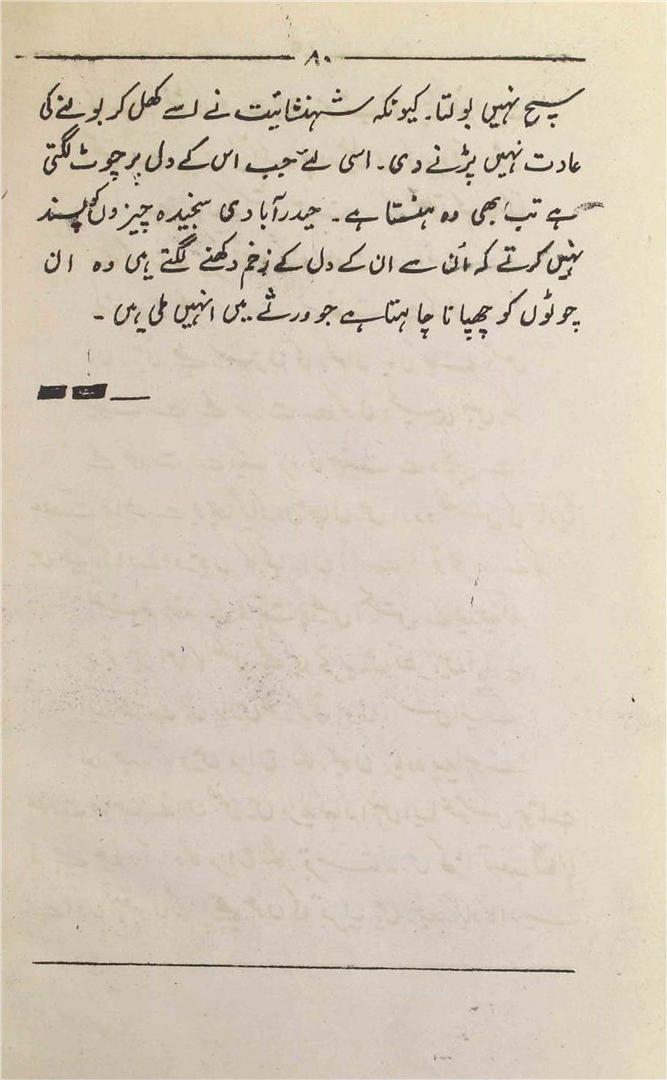 ۸۰
سچ نہیں بولتا۔ کیونکہ شہنشائیت نے اسے کھل کر بولنے کی
عادت نہیں پڑنے دی۔ اسی لئے جب اس کے دل پر چوٹ لگتی
ہے تب بھی وہ ہنستا ہے۔ حیدرآبادی سنجیدہ چیزوں کو پسند
نہیں کرتے کہ اُن سے ان کے دل کے زخم دکھنے لگتے ہیں وہ ان
چوٹوں کو چھپانا چاہتا ہے جو ورثے میں انہیں ملی ہیں۔